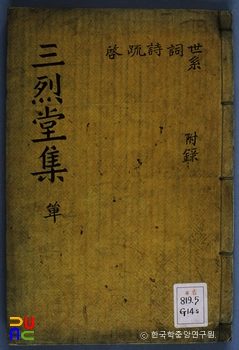 三烈堂集 單
世系 詞 詩 疏 啓
附錄
819.5
G14s
© 한국학중앙연구원